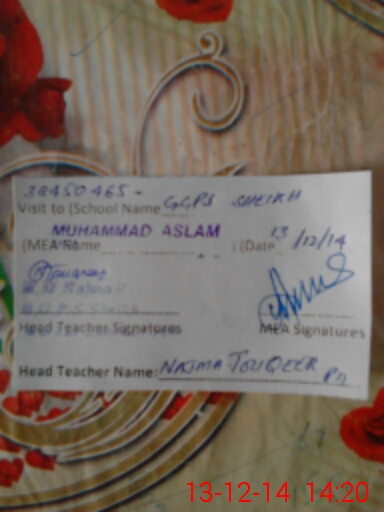 38450465-
Visit to (School Name GGPS SHEIKH
(MEA Name MUHAMMAD ASLAM (Date 13/12/14
Head Teacher Signatures MEA Signatures
Head Teacher Name: NAJMA TOUQEER
13-12-14 14:20